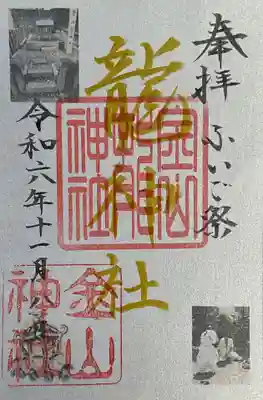 奉拝 ふいご祭
龍神社
令和六年十一月八日
金山
神社
金山
神社